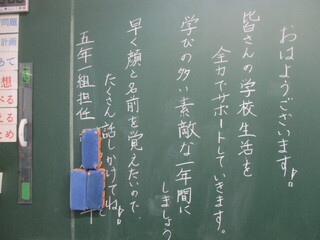 おはようございます!!
皆さんの学校生活を
全力でサポートしていきます。
学びの多い素敵な一年間に
しましょう
早く顔と名前を覚えたいので、
たくさん話しかけてね!!
五年一組担任
問題
計画